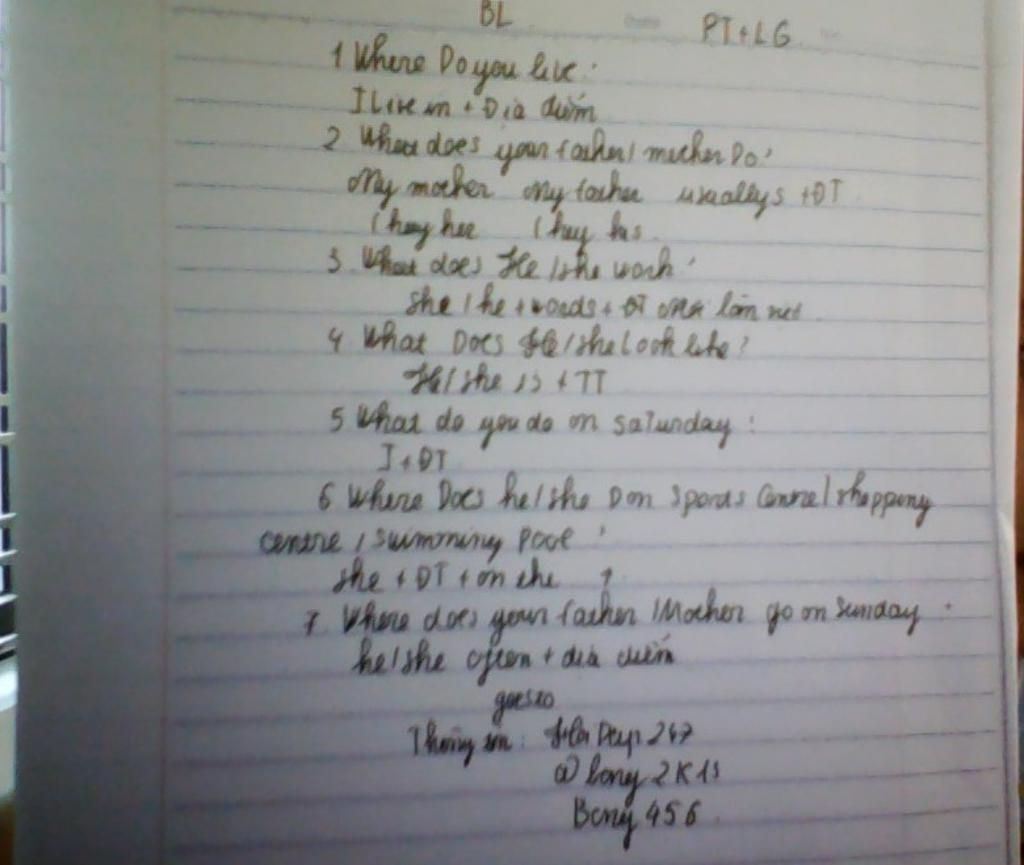 BL PT+LG
1 Where Do you live:
I Live in + Địa điểm
2 What does your father/ mother Do?
My mother My father usually s + ĐT
they her they his
3. What does He/she work?
she / he + words + ĐT
4 What Does He/she Look like?
He/she is + TT
5 What do you do on saturday:
I + ĐT
6 Where Does he/she Don sports Centre/shopping
centre / swimming pool ?
she + ĐT + on the ?
7 Where does your father /Mother go on Sunday
he/she often + địa điểm
goes to
Thông tin: 247
@ bony 2K13
Bony 456